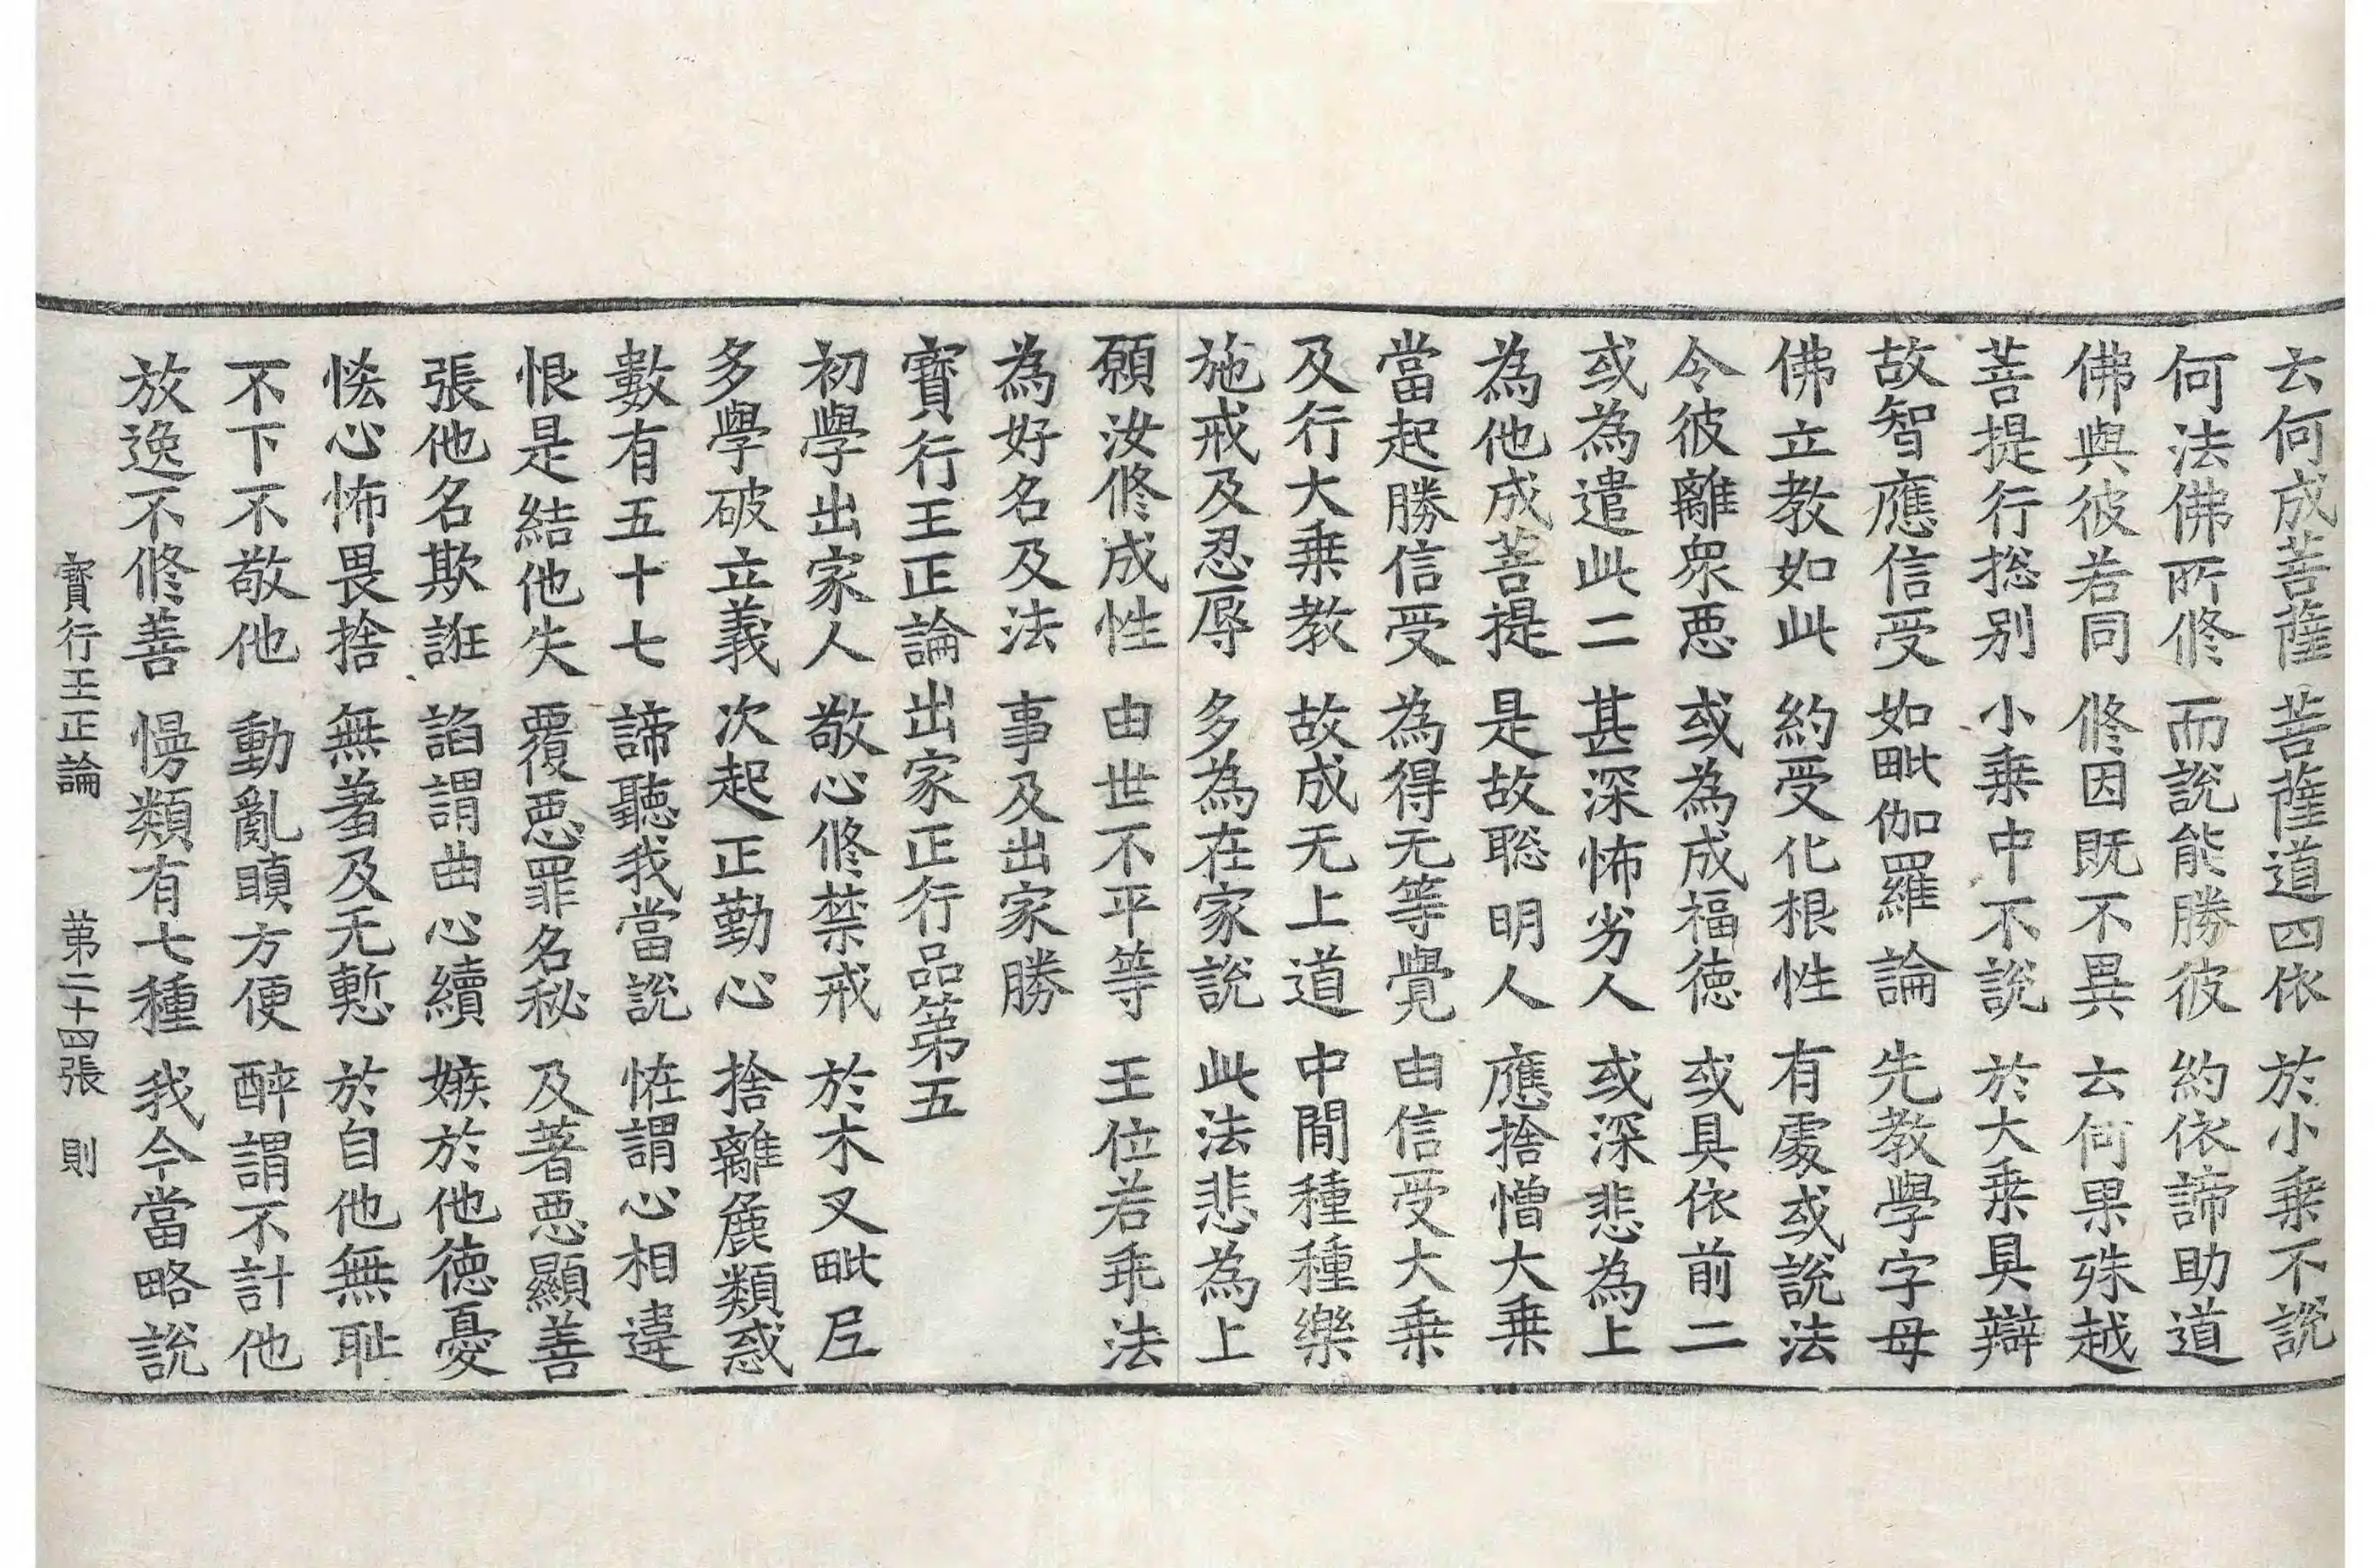 云何成菩薩 菩薩道四依 於小乗不說
何法佛所修 而說能勝彼 約依諦助道
佛與彼若同 修因既不異 云何果殊越
菩提行捴别 小乗中不說 於大乗具辯
故智應信受 如毗伽羅論 先教學字母
佛立教如此 約受化根性 有處或說法
令彼離衆惡 或為成福德 或具依前二
或為遣此二 甚深怖劣人 或深悲為上
為他成菩提 是故聡明人 應捨憎大乗
當起勝信受 為得无等覺 由信受大乗
及行大乗教 故成无上道 中閒種種樂
施戒及忍辱 多為在家說 此法悲為上
願汝修成性 由世不平等 王位若乖法
為好名及法 事及出家勝
寶行王正論出家正行品第五
初學出家人 敬心修禁戒 於木叉毗尼
多學破立義 次起正勤心 捨離麁類惑
數有五十七 諦聽我當說 恠謂心相違
恨是結他失 覆惡罪名秘 及著惡顯善
張他名欺誑 謟謂曲心續 嫉於他德憂
恡心怖畏捨 無羞及无慙 於自他無恥
不下不敬他 動亂瞋方便 醉謂不計他
放逸不修善 慢類有七種 我今當略說
寶行王正論 苐二十四張 則